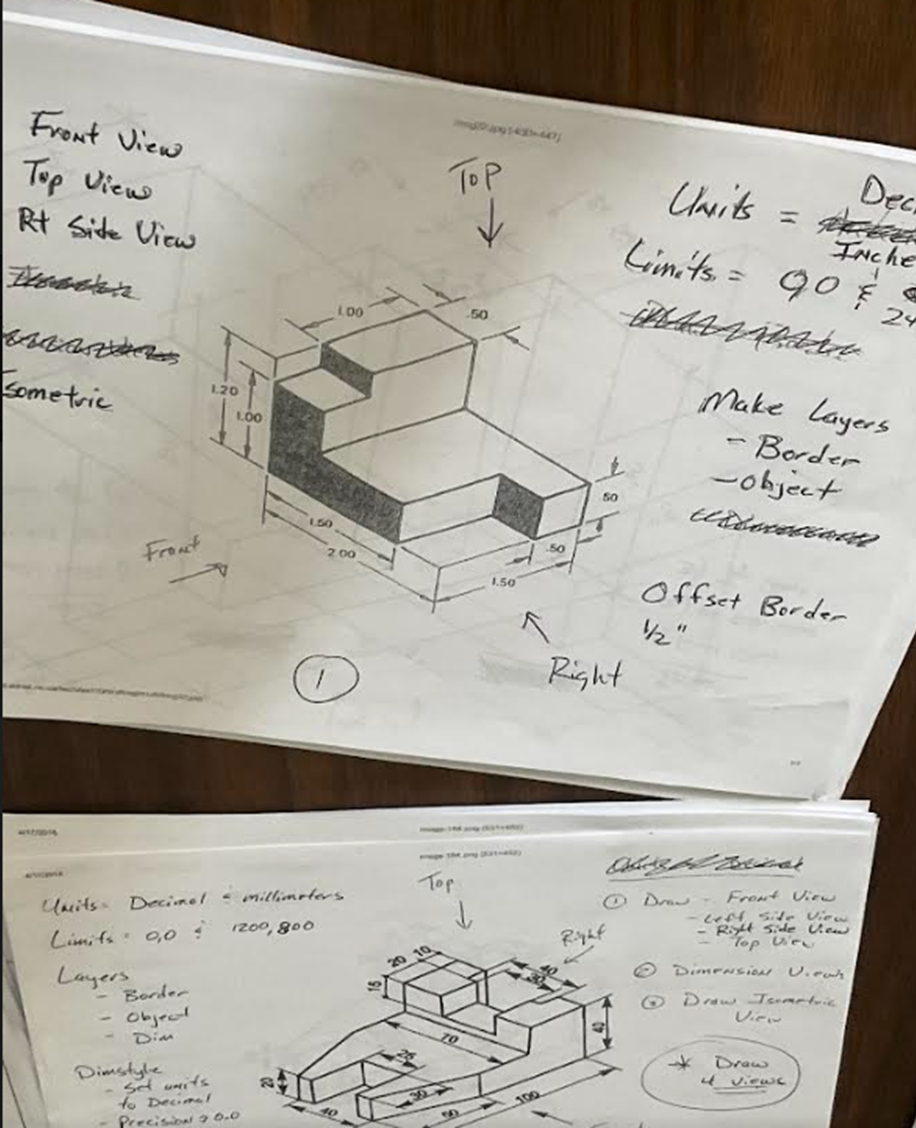 Front View
Top View
Rt Side View
Isometric
TOP
Units =
Limits = 0,0 &
Make Layers
- Border
- Object
Offset Border
1/2"
1.00
.50
1.20
1.00
1.50
2.00
.50
.50
1.50
Front
Right
1
Units = Decimal & millimeters
Limits = 0,0 & 1200,800
Layers
- Border
- Object
- Dim
Dimstyle
- Set units
to Decimal
- Precision > 0.0
Top
Right
20
10
15
40
30
70
40
25
20
30
40
50
100
① Draw - Front View
- Left Side View
- Right Side View
- Top View
② Dimension Views
③ Draw Isometric
View
* Draw
4 Views